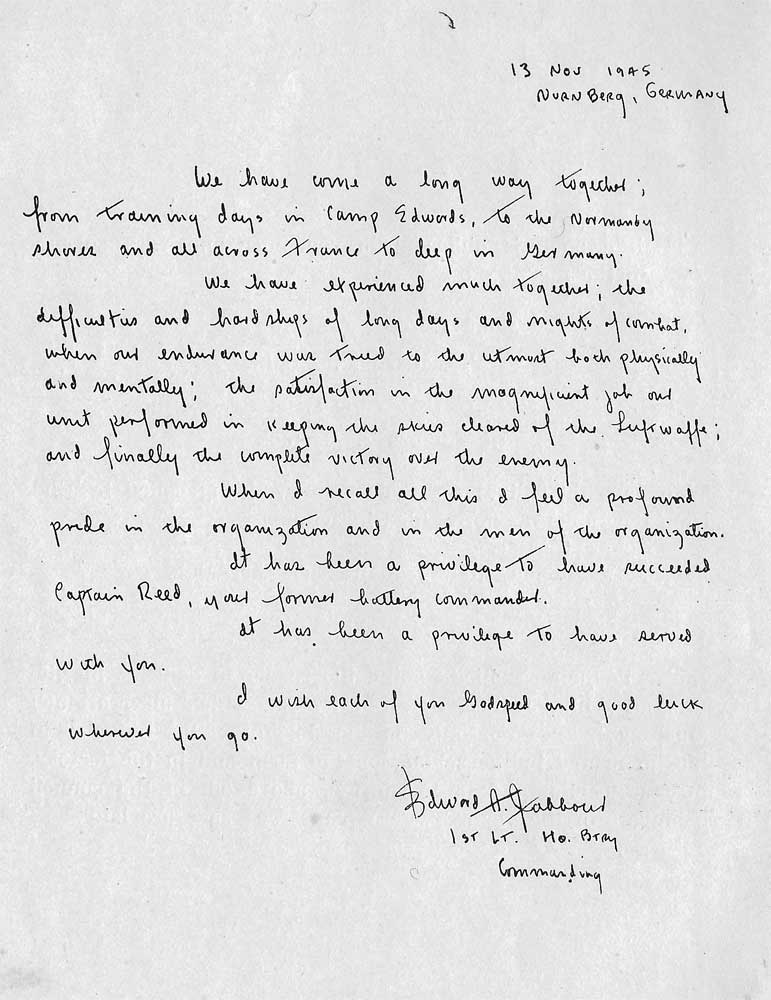 13 Nov 1945
Nurnberg, Germany
We have come a long way together;
from training days in Camp Edwards, to the Normandy
shores and all across France to deep in Germany.
We have experienced much together; the
difficulties and hardships of long days and nights of combat,
when our endurance was tried to the utmost both physically
and mentally; the satisfaction in the magnificient job our
unit performed in keeping the skies cleared of the Luftwaffe;
and finally the complete victory over the enemy.
When I recall all this I feel a profound
pride in the organization and in the men of the organization.
It has been a privilege to have succeeded
Captain Reed, your former battery commander.
It has been a privilege to have served
with you.
I wish each of you Godspeed and good luck
wherever you go.
Edward A. Jabbour
1st Lt. Hq. Btry
Commanding